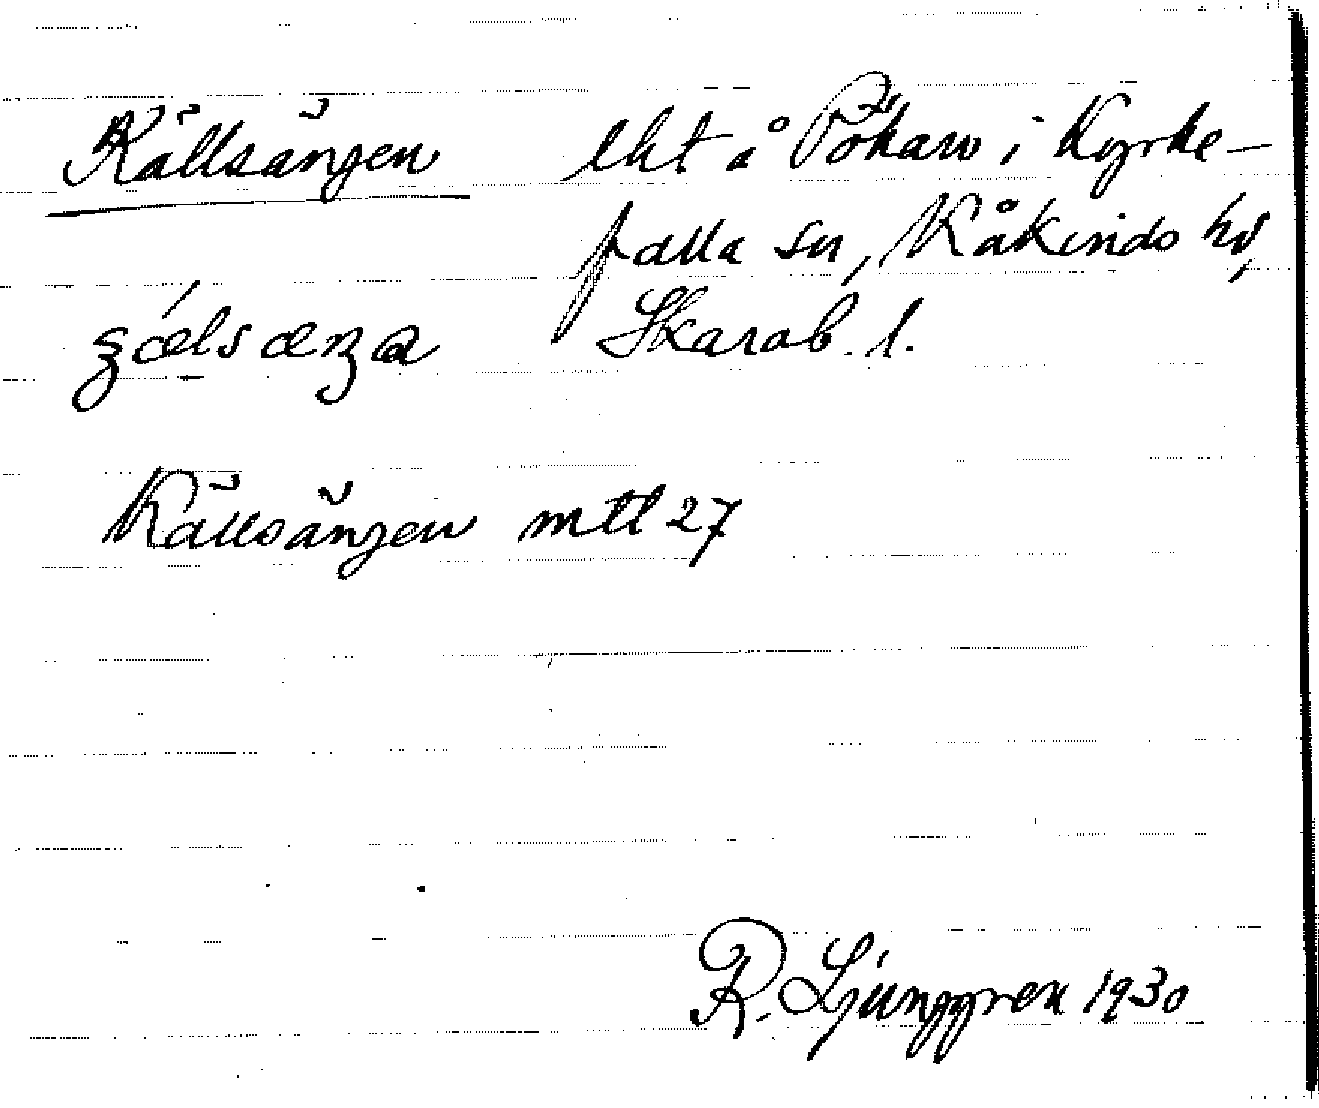 Källsängen lht å Pökaw i Kyrke-
falla sn, Kåkinds hd,
Skarab. l.
Källsängen mtl 27
R. Ljunggren 1930